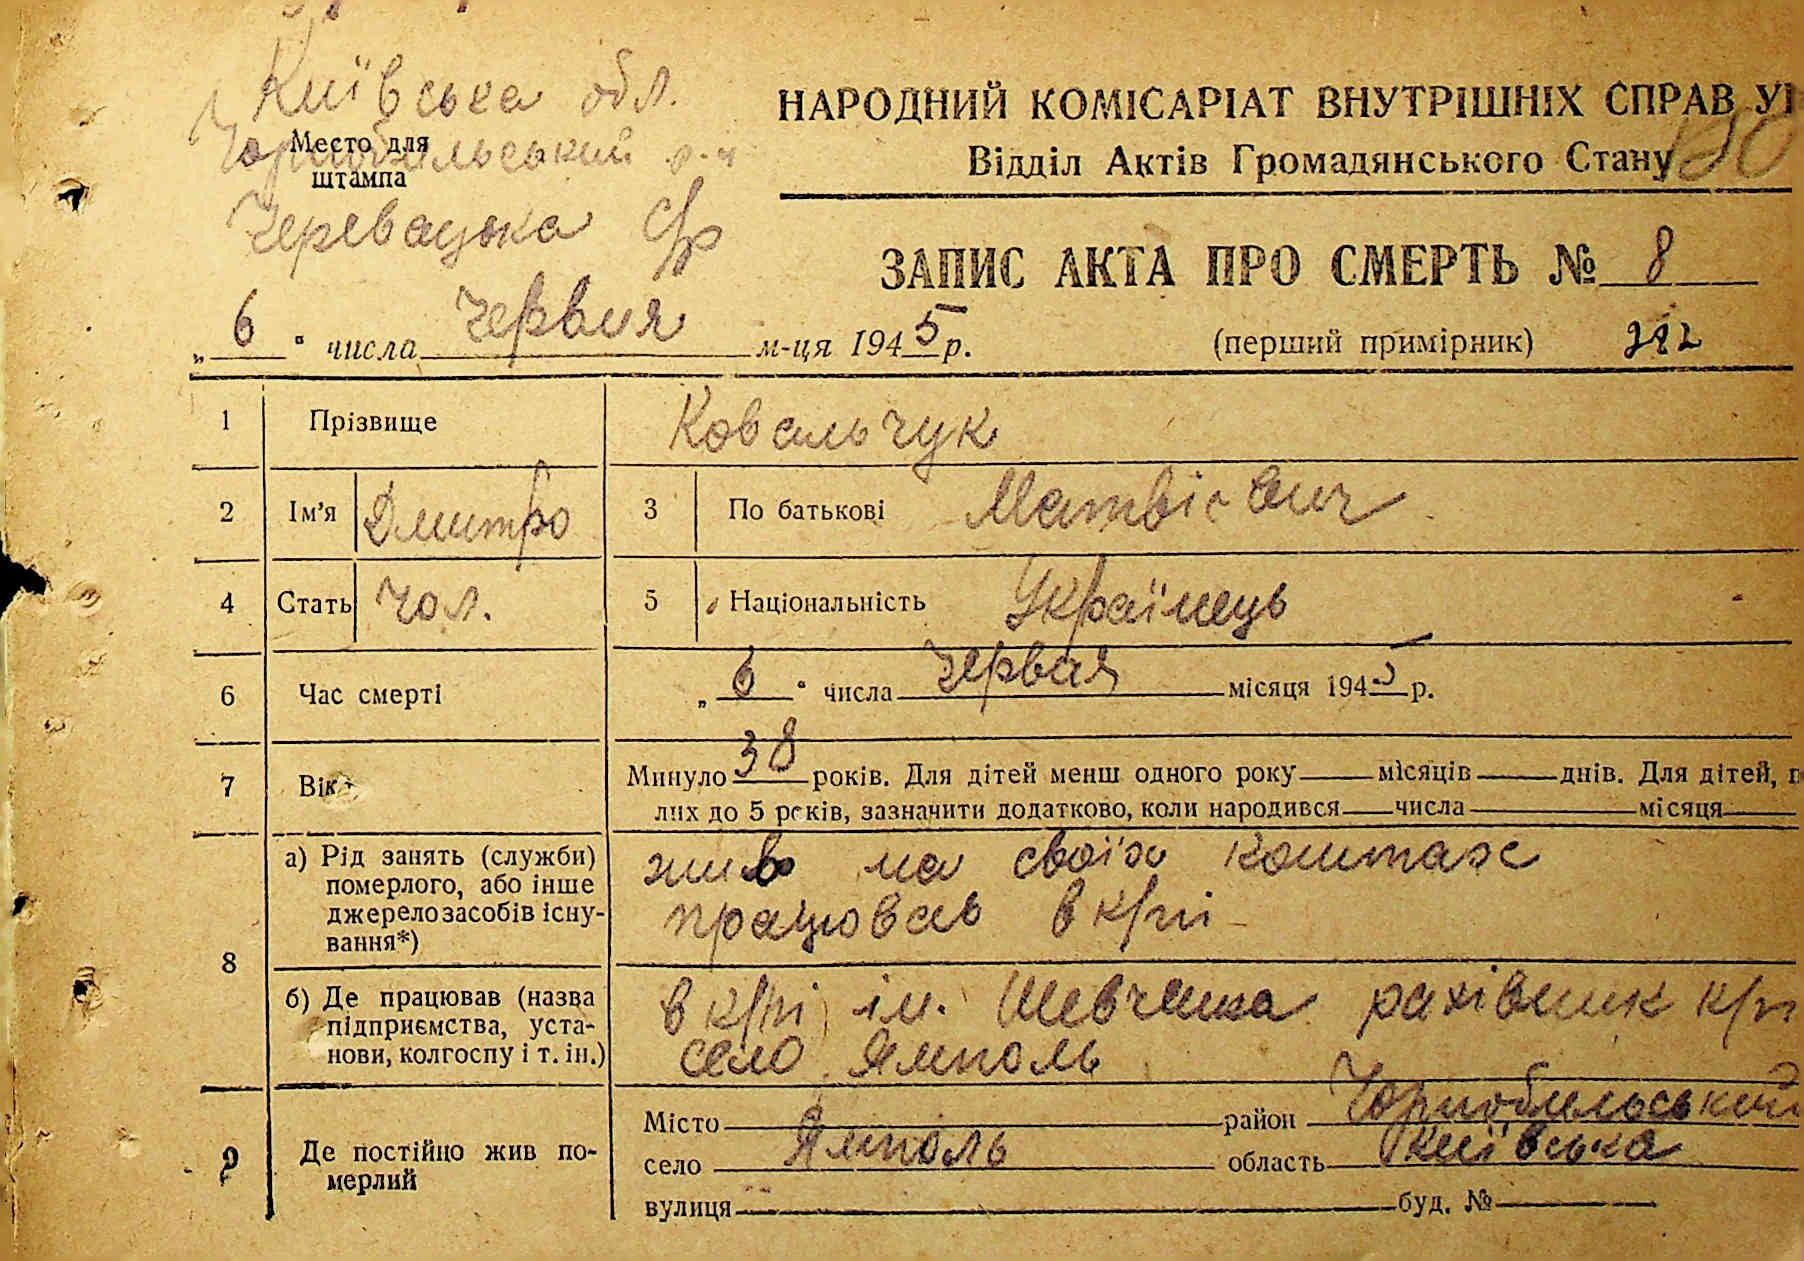 Київська обл.
Чорнобильський р-н
Место для
штампа
Черевацька с/р
НАРОДНИЙ КОМІСАРІАТ ВНУТРІШНІХ СПРАВ УР
Відділ Актів Громадянського Стану
ЗАПИС АКТА ПРО СМЕРТЬ № 8
„ 6 " числа червня м-ця 1945 р.
(перший примірник)
1 Прізвище Ковальчук
2 Ім'я Дмитро 3 По батькові Матвієвич
4 Стать чол. 5 Національність Українець
6 Час смерті „ 6 " числа червня місяця 1945 р.
7 Вік Минуло 38 років. Для дітей менш одного року місяців днів. Для дітей,
лих до 5 років, зазначити додатково, коли народився числа місяця
8 а) Рід занять (служби)
померлого, або інше
джерело засобів існу-
вання*)
жив на своїх коштах
працював в к/гпі
б) Де працював (назва
підприємства, уста-
нови, колгоспу і т. ін.)
в к/гпі ім. Шевченка рахівник
село Ямполь
9 Де постійно жив по-
мерлий
Місто район Чорнобильський
село Ямполь область Київська
вулиця буд. №